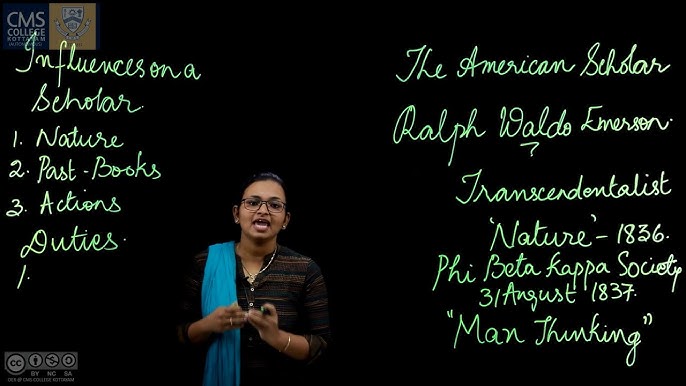 CMS
COLLEGE
KOTTAYAM
(AUTONOMOUS)
Influences on a
Scholar.
1. Nature
2. Past-Books
3. Actions
Duties.
1.
The American Scholar
Ralph Waldo Emerson.
?
Transcendentalist
'Nature' - 1836.
Phi Beta Kappa Society
31 August 1837.
"Man Thinking"
CC
BY NC SA
DEX @ CMS COLLEGE KOTTAYAM